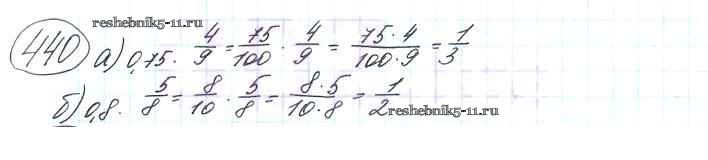 reshebnik5-11.ru
440 а) 0,75 · 4/9 = 75/100 · 4/9 = 75·4/100·9 = 1/3
б) 0,8 · 5/8 = 8/10 · 5/8 = 8·5/10·8 = 1/2
reshebnik5-11.ru